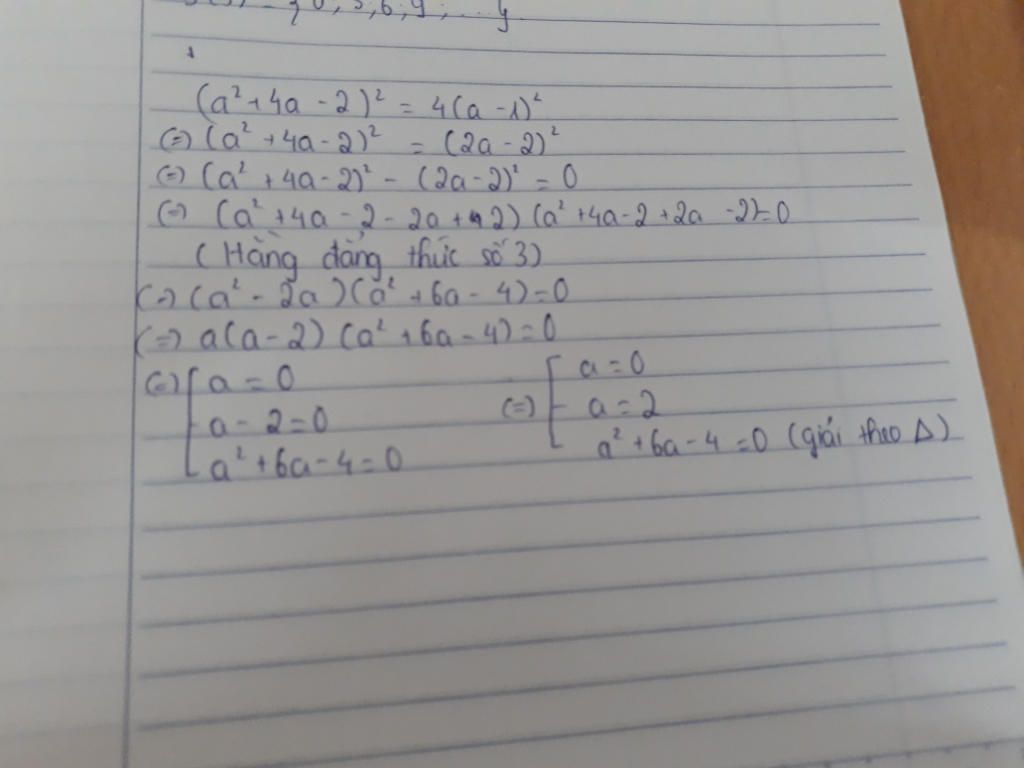 0; 3; 6; 9; ... }
(a² + 4a - 2)² = 4(a - 1)²
(=) (a² + 4a - 2)² = (2a - 2)²
(=) (a² + 4a - 2)² - (2a - 2)² = 0
(=) (a² + 4a - 2 - 2a + 2) (a² + 4a - 2 + 2a - 2) = 0
(Hằng đẳng thức số 3)
(=) (a² - 2a) (a² + 6a - 4) = 0
(=) a(a - 2) (a² + 6a - 4) = 0
(=) [ a = 0 (=) [ a = 0
a - 2 = 0 a = 2
a² + 6a - 4 = 0 a² + 6a - 4 = 0 (giải theo Δ)